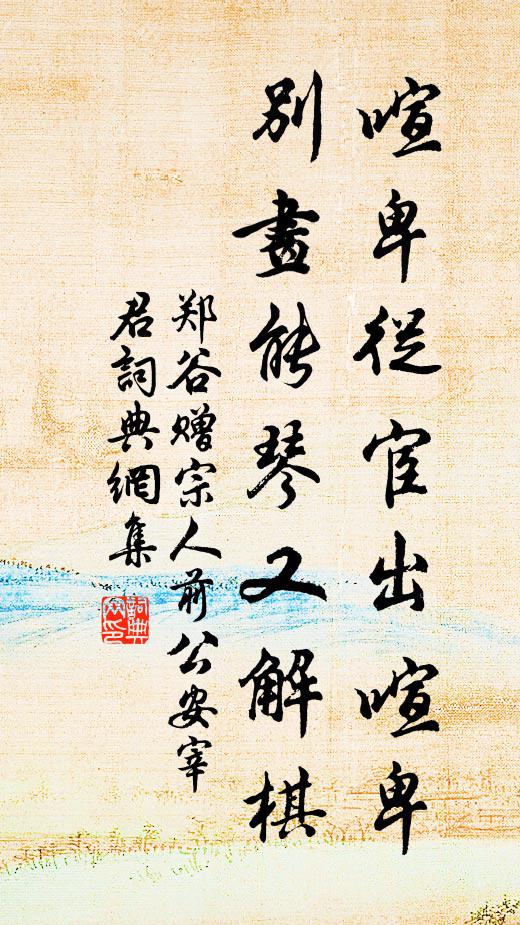 喧卑從宦出喧卑
別畫能琴又解棋
郑谷赠宗人前公安宰
君詞典網集